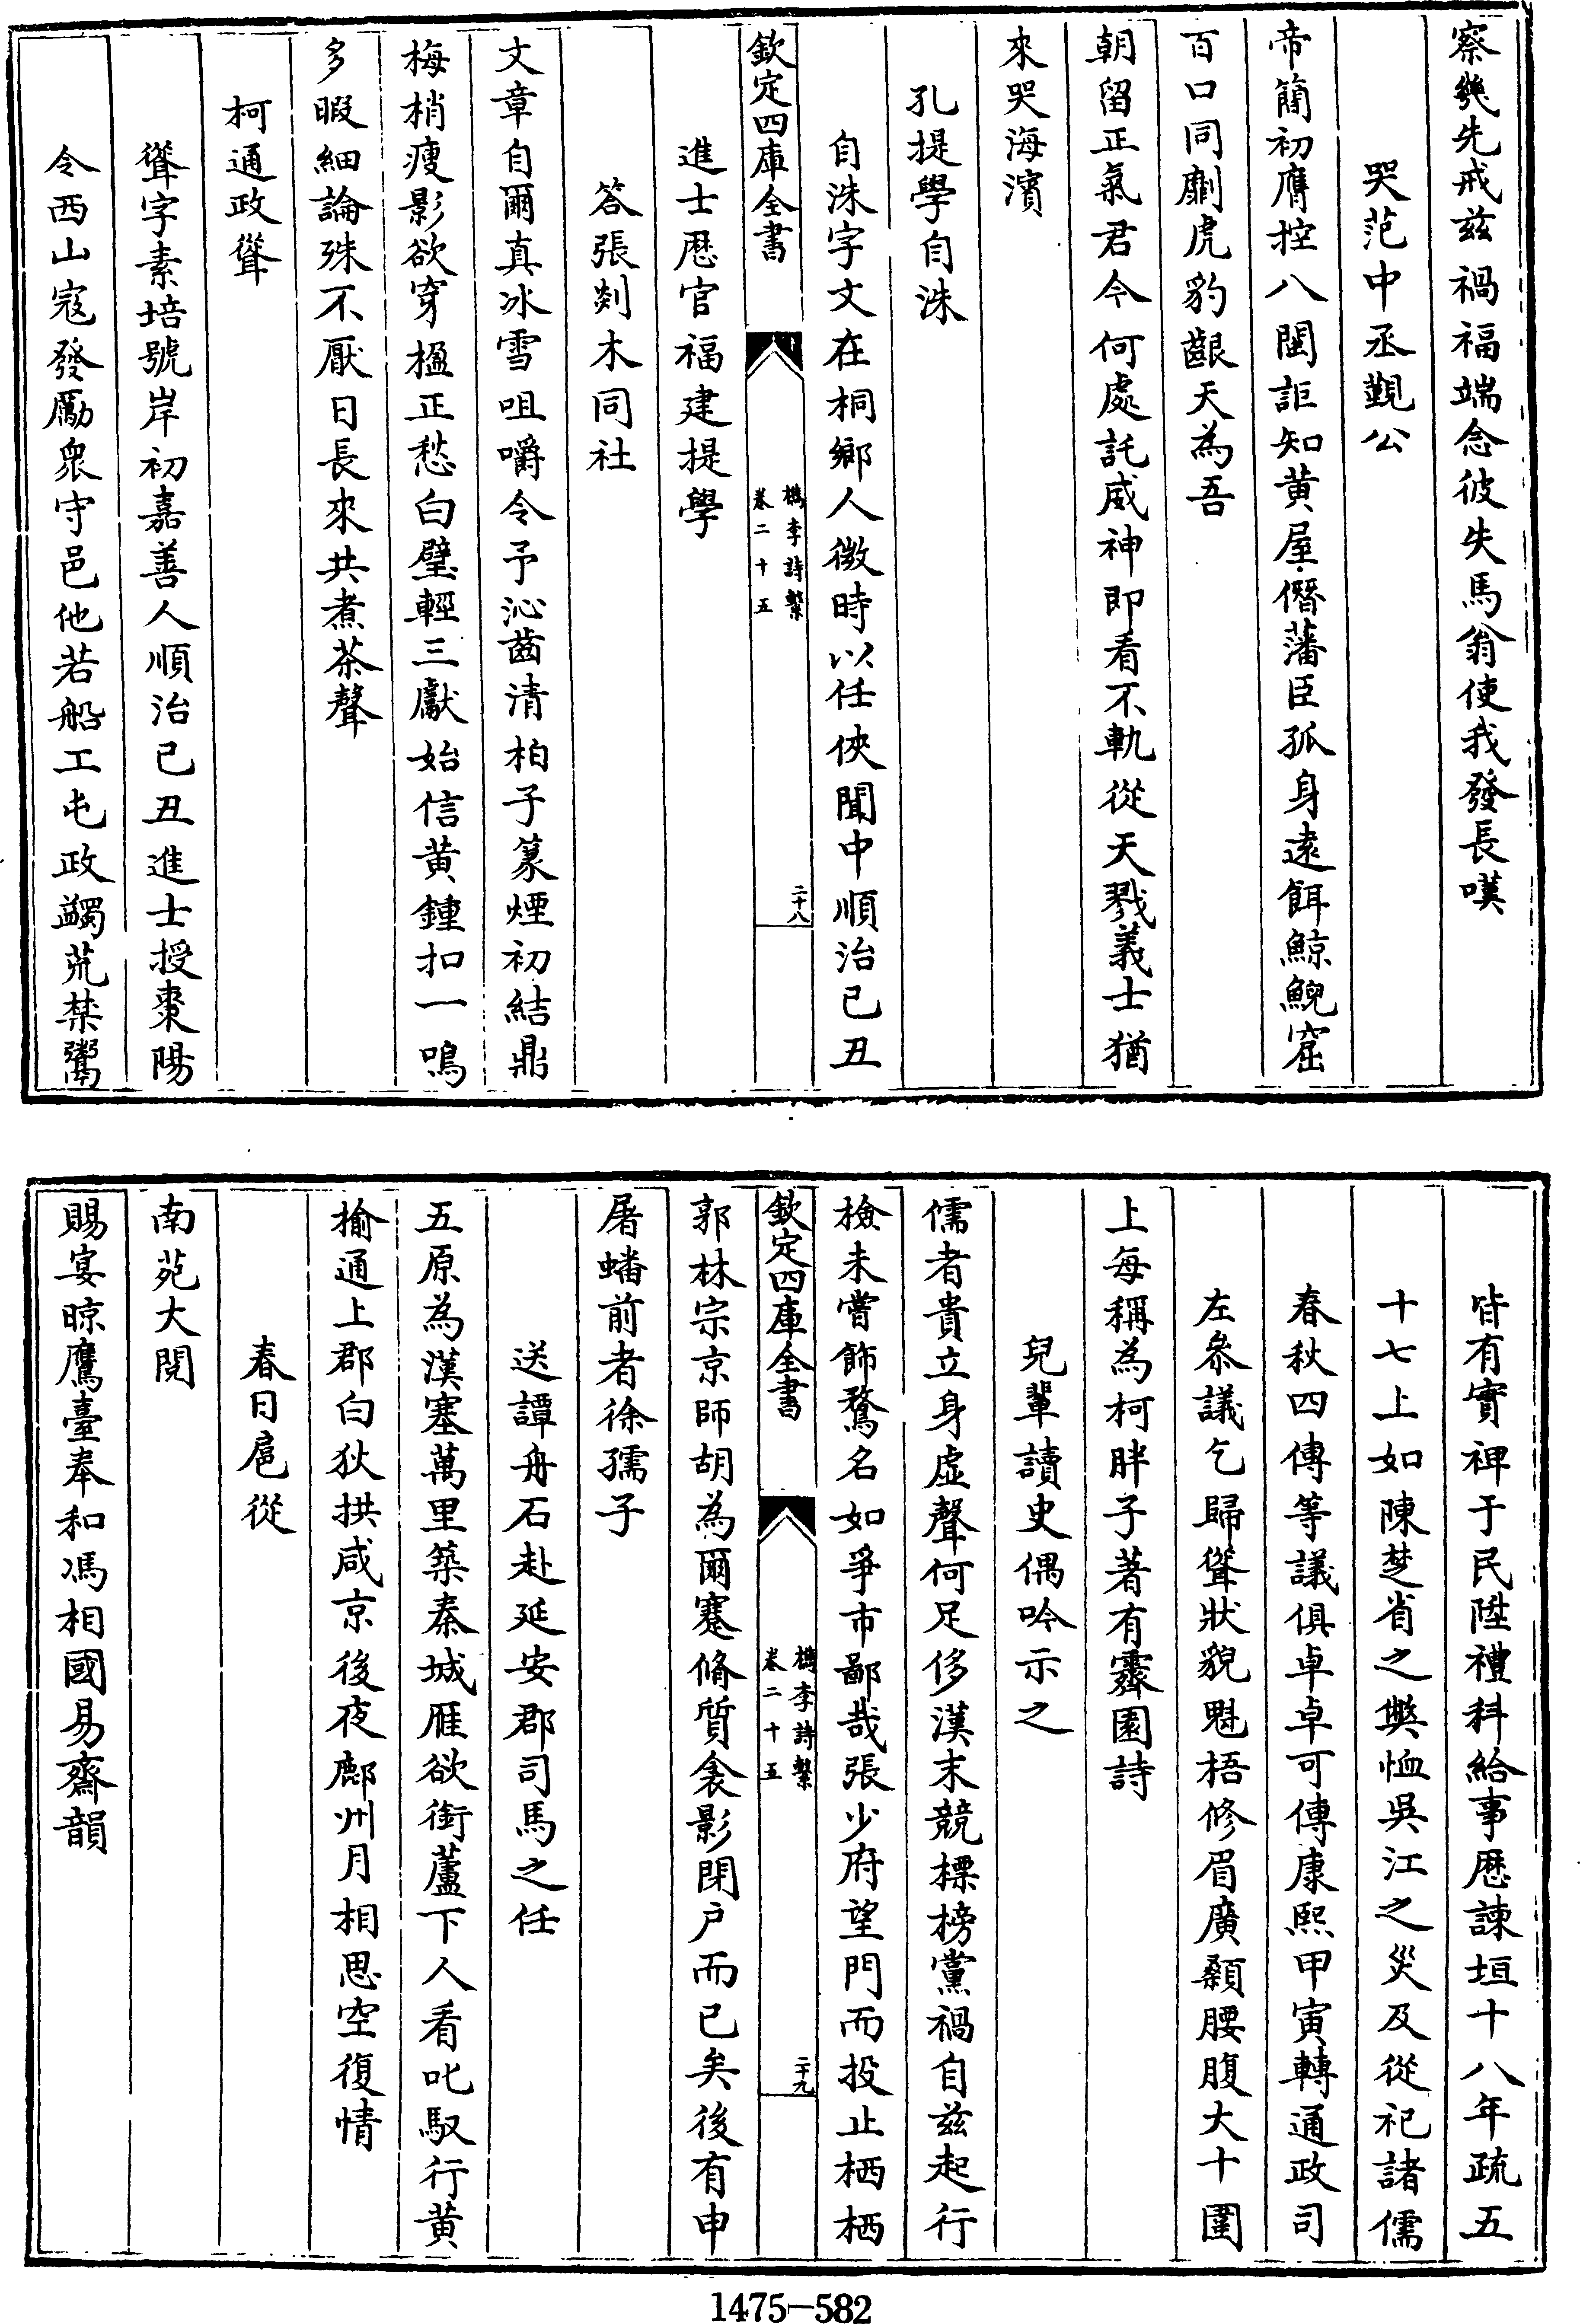 察幾先戒兹禍福端念彼失馬翁使我發長嘆
哭范中丞覲公
帝簡初膺控八閩詎知黄屋僭藩臣孤身遠餌鯨鯢窟
百口同劘虎豹齦天為吾
朝留正氣君今何處託威神即看不軌從天戮義士猶
來哭海濱
孔提學自洙
自洙字文在桐鄉人微時以任俠聞中順治己丑
欽定四庫全書
檇李詩繫
卷二十五
二十八
進士厯官福建提學
答張剡木同社
文章自爾真冰雪咀嚼令予沁齒清柏子篆煙初結鼎
梅梢瘦影欲穿楹正愁白璧輕三獻始信黄鍾扣一鳴
多暇細論殊不厭日長來共煮茶聲
柯通政聳
聳字素培號岸初嘉善人順治己丑進士授棗陽
令西山寇發勵衆守邑他若船工屯政蠲荒禁鬻
皆有實裨于民陞禮科給事歴諫垣十八年疏五
十七上如陳楚省之獘恤吳江之災及從祀諸儒
春秋四傳等議俱卓卓可傳康熙甲寅轉通政司
左叅議乞歸聳狀貌魁梧修眉廣顙腰腹大十圍
上每稱為柯胖子著有霽園詩
兒輩讀史偶吟示之
儒者貴立身虚聲何足侈漢末競標榜黨禍自兹起行
檢未嘗飾騖名如爭市鄙哉張少府望門而投止栖栖
欽定四庫全書
檇李詩繫
卷二十五
二十九
郭林宗京師胡為爾蹇脩質衾影閉户而已矣後有申
屠蟠前者徐孺子
送譚舟石赴延安郡司馬之任
五原為漢塞萬里築秦城雁欲銜蘆下人看叱馭行黄
榆通上郡白狄拱咸京後夜鄜州月相思空復情
春日扈從
南苑大閱
賜宴晾鷹臺奉和馮相國易齋韻
1475-582